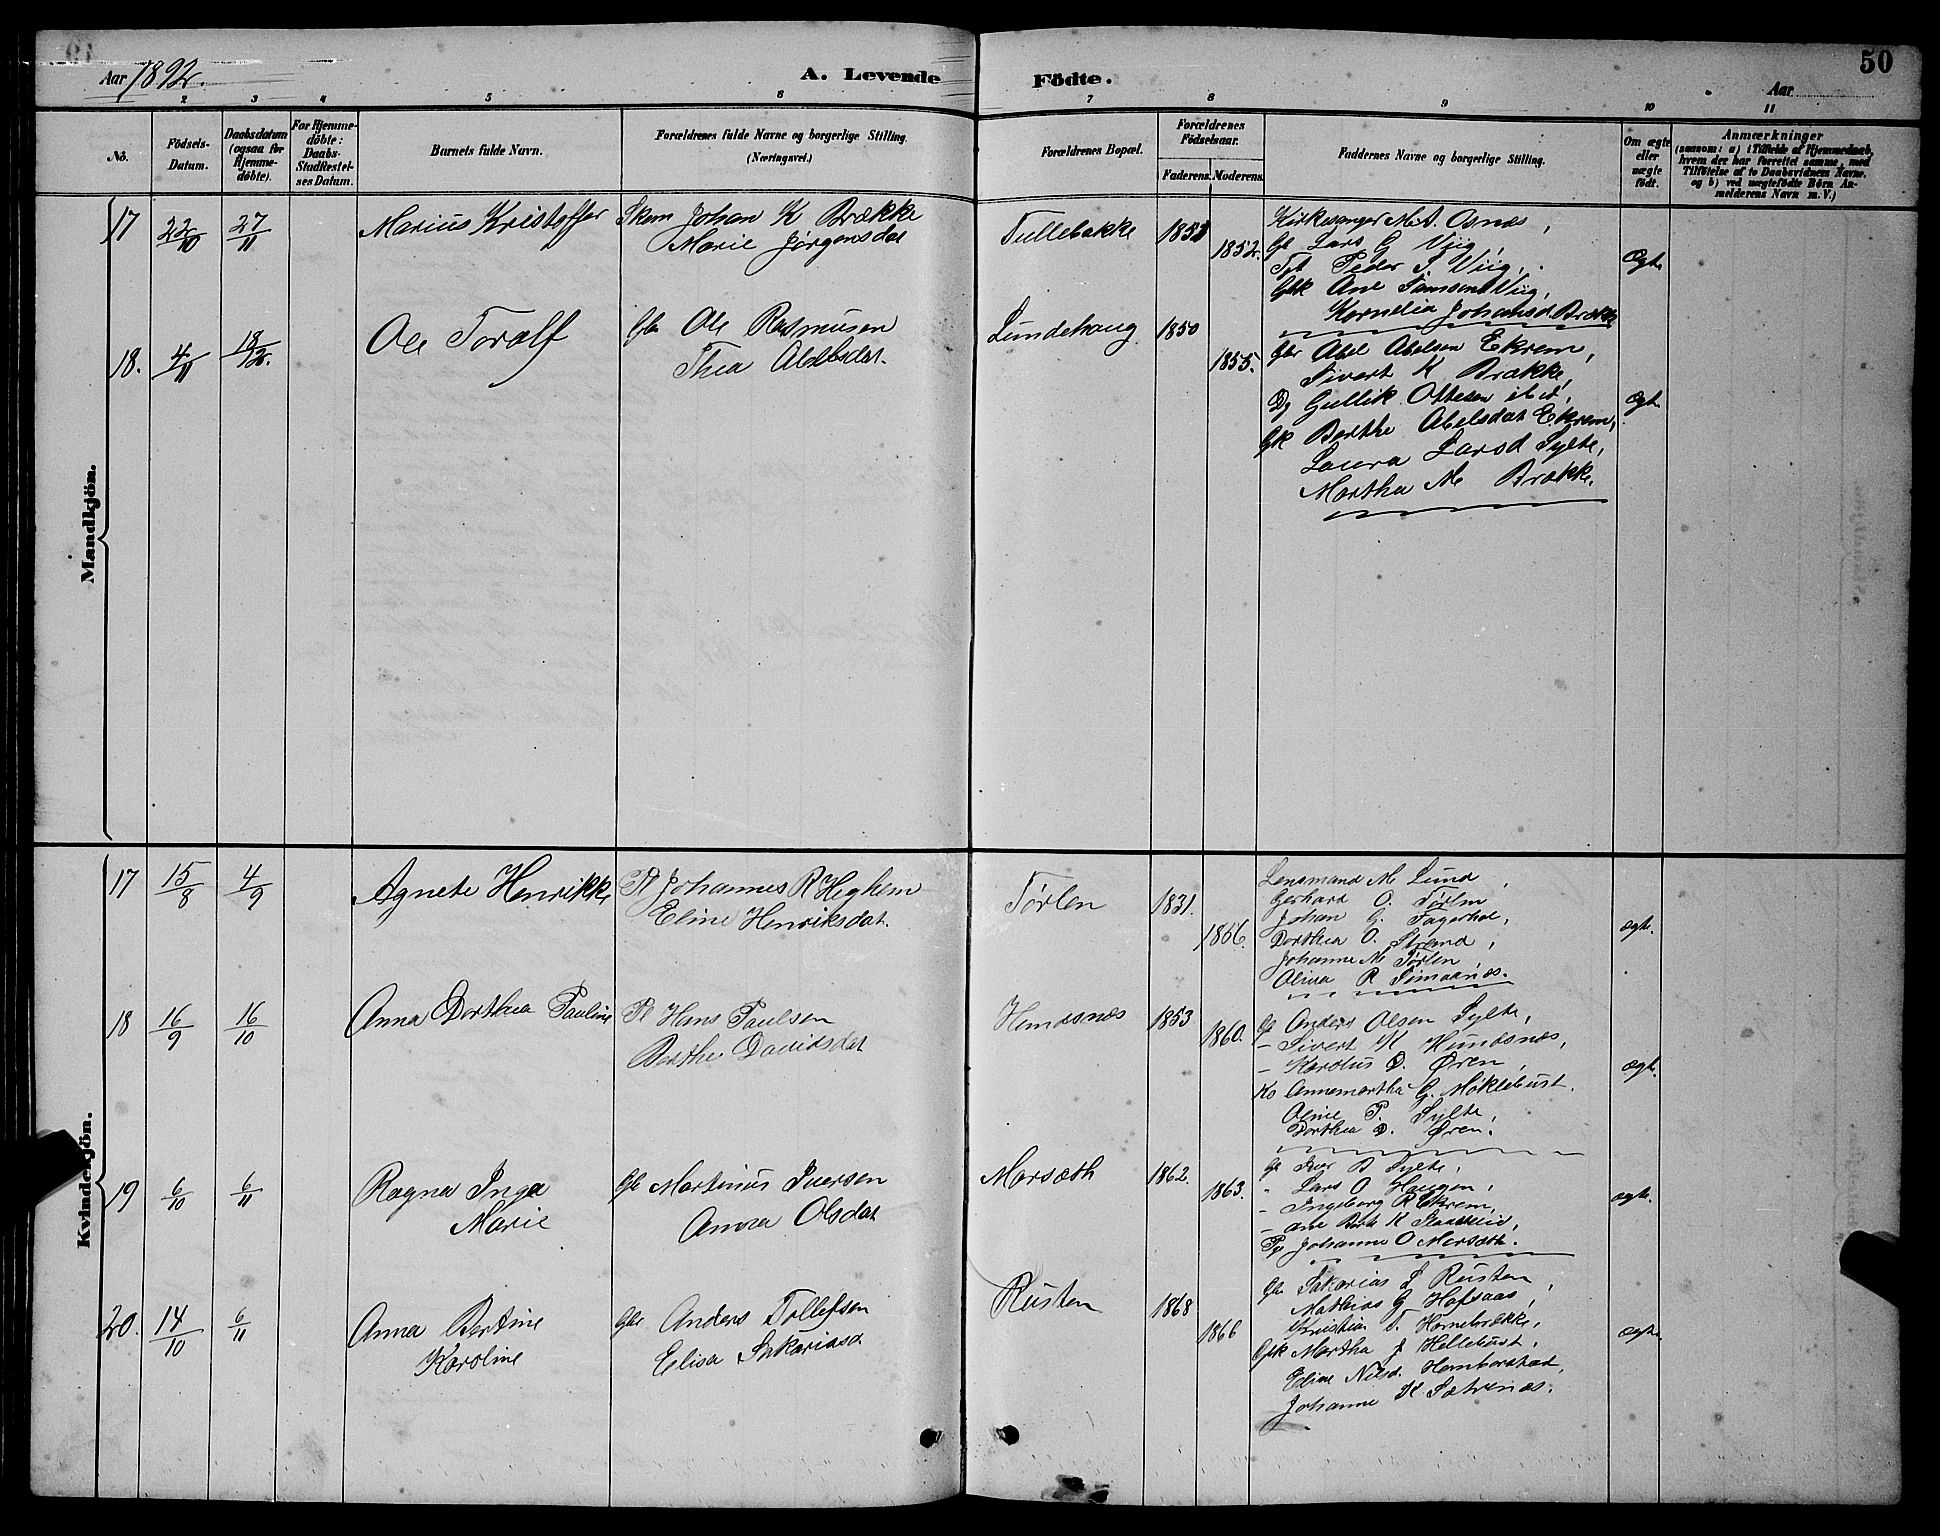 Aar 1892.
A. Levende Födte.
50
Aar
2 3 4 5 6 7 8 9 10 11
No.
Födsels-Datum.
Daabsdatum (ogsaa for Hjemme-döbte).
For Hjemme-döbte: Daabs-Stadfæstel-ses Datum.
Barnets fulde Navn.
Forældrenes fulde Navne og borgerlige Stilling. (Næringsvei.)
Forældrenes Bopæl.
Forældrenes Födselsaar.
Faderens. Moderens.
Faddernes Navne og borgerlige Stilling.
Om ægte eller uægte födt.
Anmærkninger
(saasom: a) i Tilfælde af Hjemmedaab,
hvem der har forrettet samme, med
Tilföielse af to Daabsvidners Navne,
og b) ved uægtefödte Börn An-
melderens Navn m. V.)
Mandkjön.
17 22/10 27/11 Marius Kristoffer Skom Johan K Brække
Marie Jørgensdat
Tullebakke 1851 1852.
Kirkesanger M. A. Osnæs,
Gb Lars G Viig,
Peder S. Viig,
Gbk Ane Tomsend Viig,
Kornelia Johansd Brække
Ægte
18. 4/11 18/12. Ole Toralf Gbr Ole Rasmusen
Thea Abelsdat.
Lundehaug 1850 1855.
Gbr Abel Abelsen Ekrem,
Sivert K Brække,
Dg Gullik Ottesen ibid,
Gk Berthe Abelsdat Ekrem,
Laura Larsd Sylte,
Martha M Brække.
Ægte
Kvindekjön.
17 15/8 4/9 Agnete Henrikke Pl Johannes R Heghem
Eline Henriksdat.
Tørlen 1831. 1866.
Lensmand M Lund,
Gerhard O. Tørlen
Johan G. Fagerhol,
Dorthea O. Strand,
Johanne M Tørlen,
Olina R Simaanes.
ægte.
18 16/9 16/10 Anna Dorthea Pauline Pl Hans Paulsen
Berthe Davidsdat
Hundsnæs 1853 1860.
Gb Anders Olsen Sylte,
- Sivert K Hundsnæs,
- Karolus D. Øren,
Ko Annemartha G. Møklebust.
Oline P. Sylte,
Dorthea D. Øren.
ægte.
19 6/10 6/11 Ragna Inga
Marie
Gb Martinus Iversen
Anna Olsdat
Morsæth 1862. 1863.
Gb Iver B Sylte,
" Lars O Haugen,
- Ingeborg R Ekrem,
Johanne O Morsæth.
ægte.
20. 14/10 6/11 Anna Bertine
Karoline
Gbr Anders Tollefsen
Elisa Sakariasd
Rusten 1868 1866
Gbr Sakarias L Rusten,
Mathias G Hofsaas,
Kristian T. Hornebrække,
Gbk Martha J Hellebust,
Eline Nilsd. Hamborstad,
Johanne K Sætrenes.
ægte